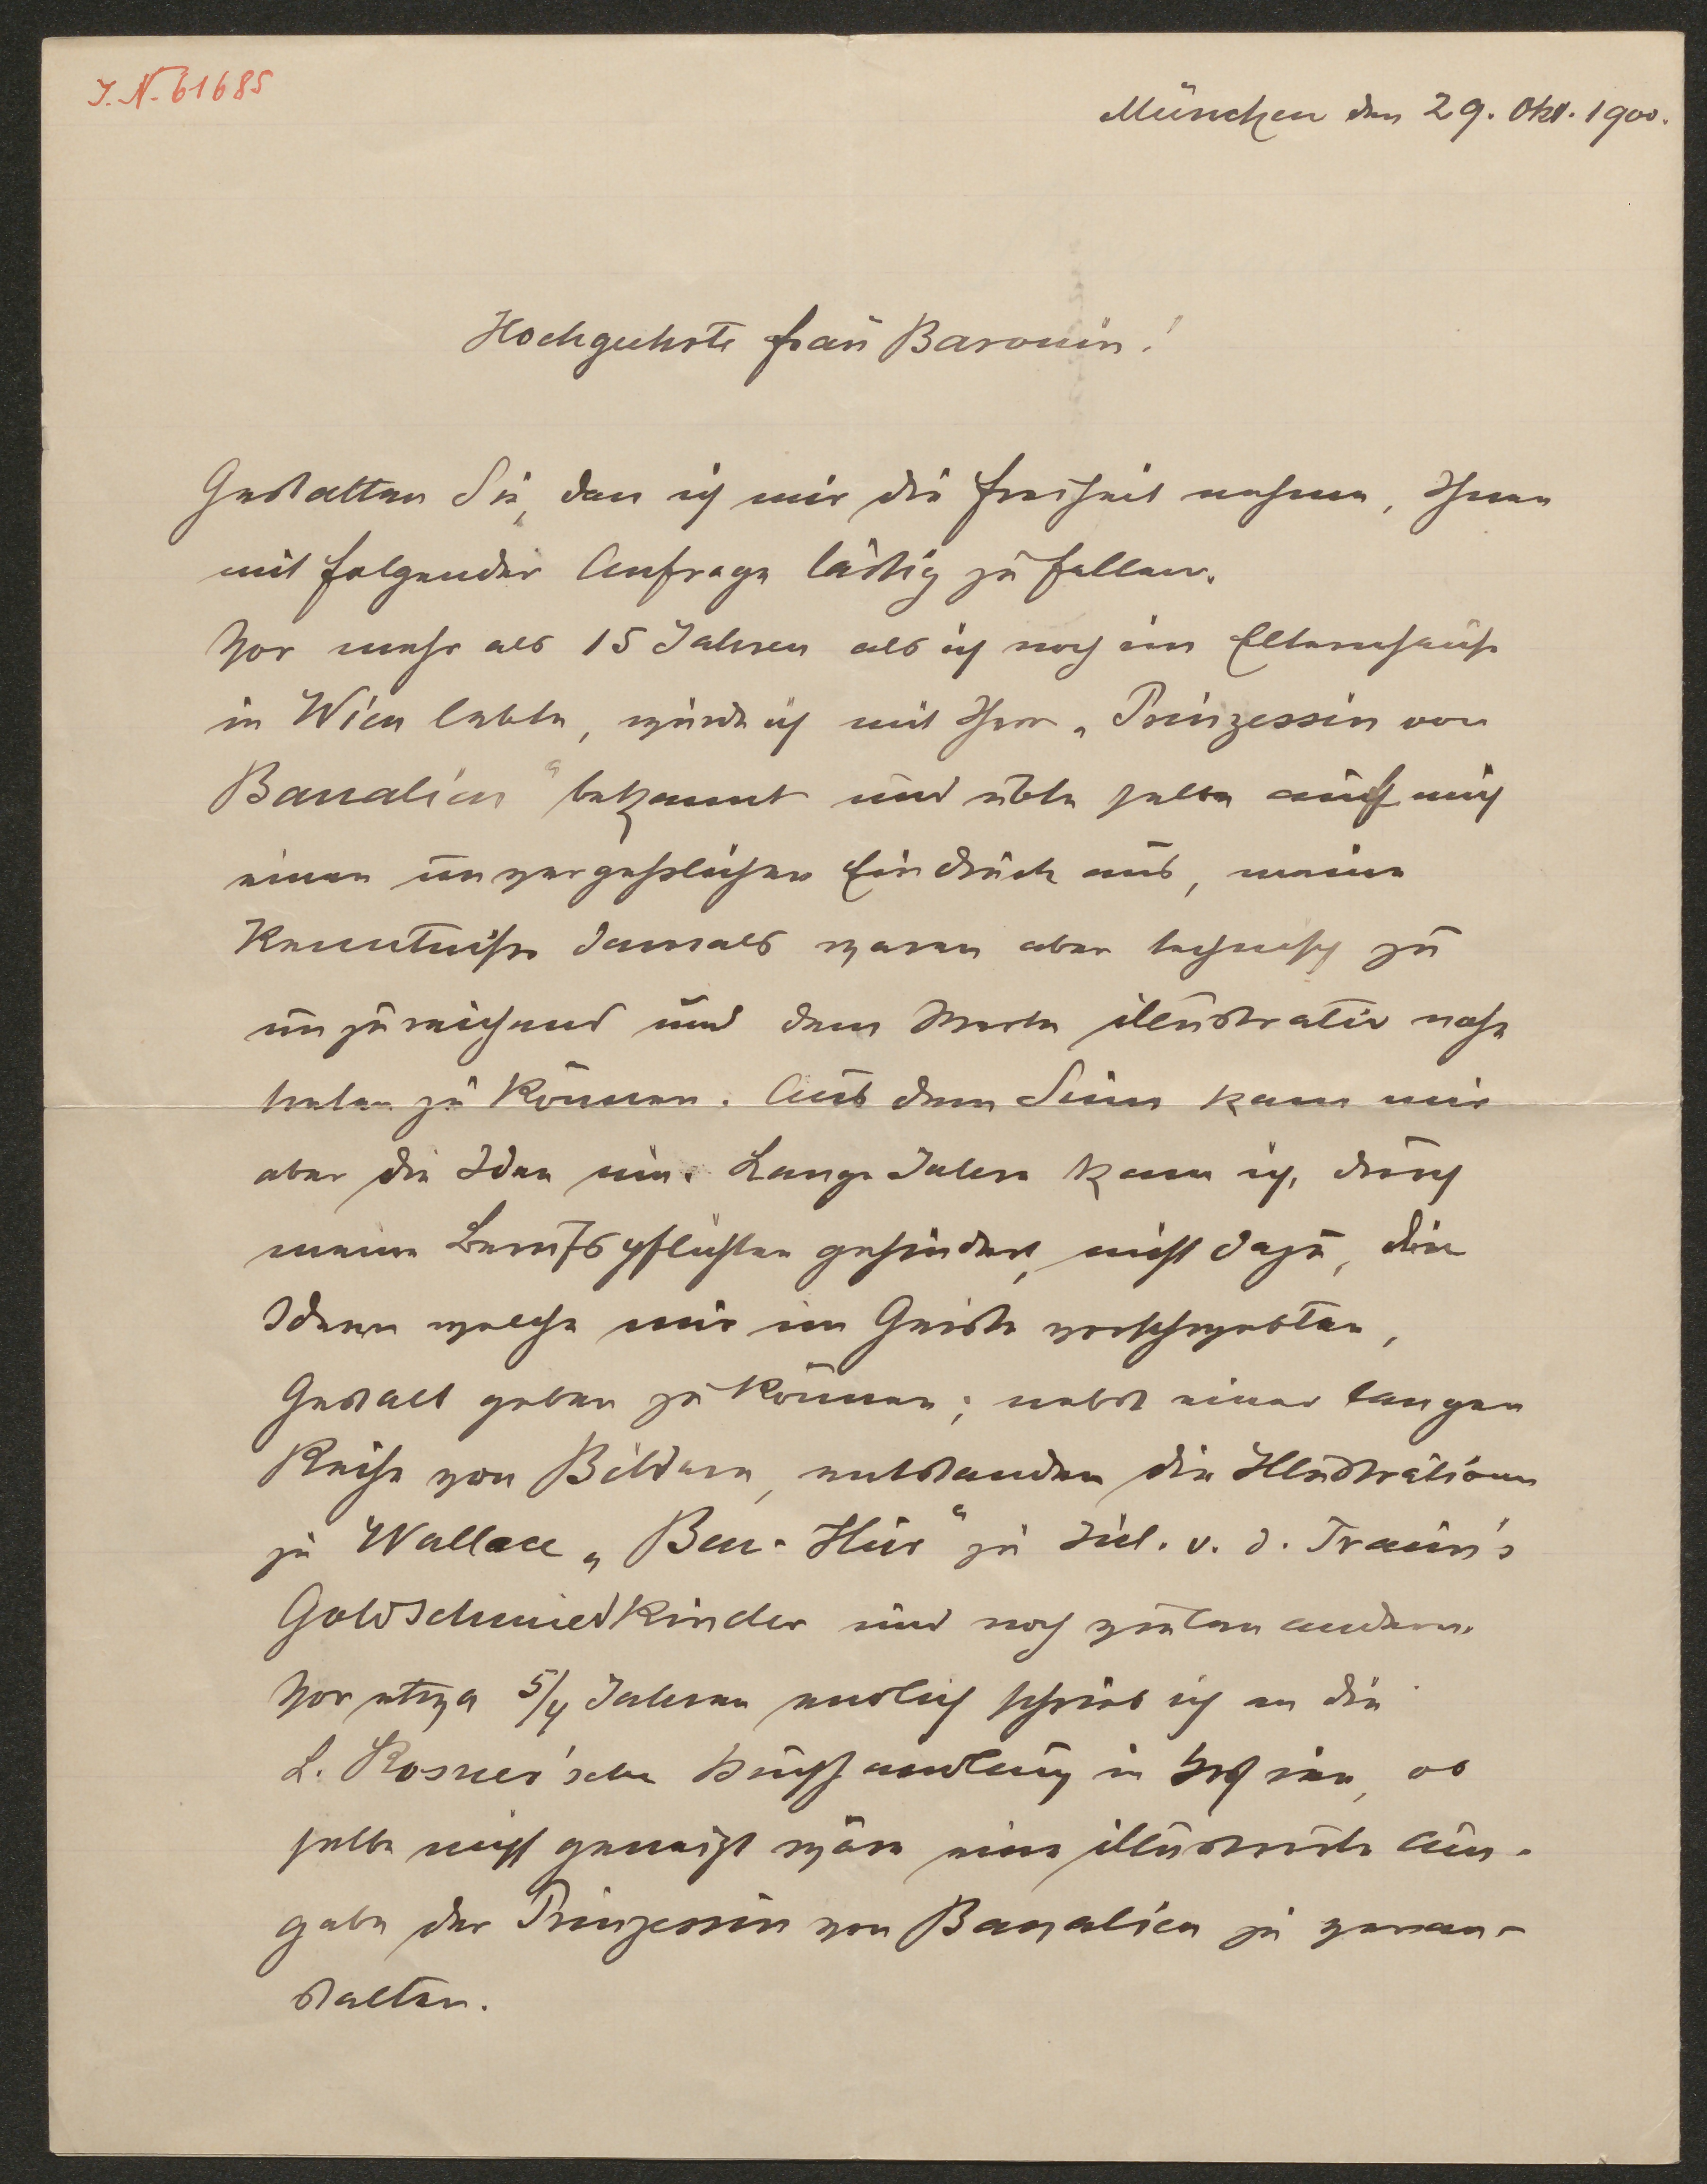 I.N. 61685
München den 29. Okt. 1900.
Hochgeehrte Frau Baronin!
Gestatten Sie, dass ich mir die Freiheit nehme, Ihnen
mit folgender Anfrage lästig zu fallen.
Vor mehr als 15 Jahren als ich noch im Elternhause
in Wien lebte, wurde ich mit Ihrer „Prinzessin von
Banalien“ bekannt und übte selbe auf mich
einen unvergesslichen Eindruck aus, meine
Kenntnisse damals waren aber technisch zu
unzureichend um dem Werke illustrativ nahe
treten zu können. Aus dem Sinn kam mir
aber die Idee nie. Lange Jahre kam ich, durch
meine Berufspflichten gehindert, nicht dazu, die
Ideen welche mir im Geiste vorschwebten,
Gestalt geben zu können; nebst einer langen
Reihe von Bildern, entstanden die Illustrationen
zu Wallace „Ben-Hur“ zu Jul. v. d. Traun's
Goldschmiedkinder und noch vielen andern.
Vor etwa 5/4 Jahren endlich schrieb ich an die
L. Rosner'sche Buchhandlung in Wien, ob
selbe nicht geneigt wäre eine illustrierte Aus-
gabe der Prinzessin von Banalien zu veran-
stalten.